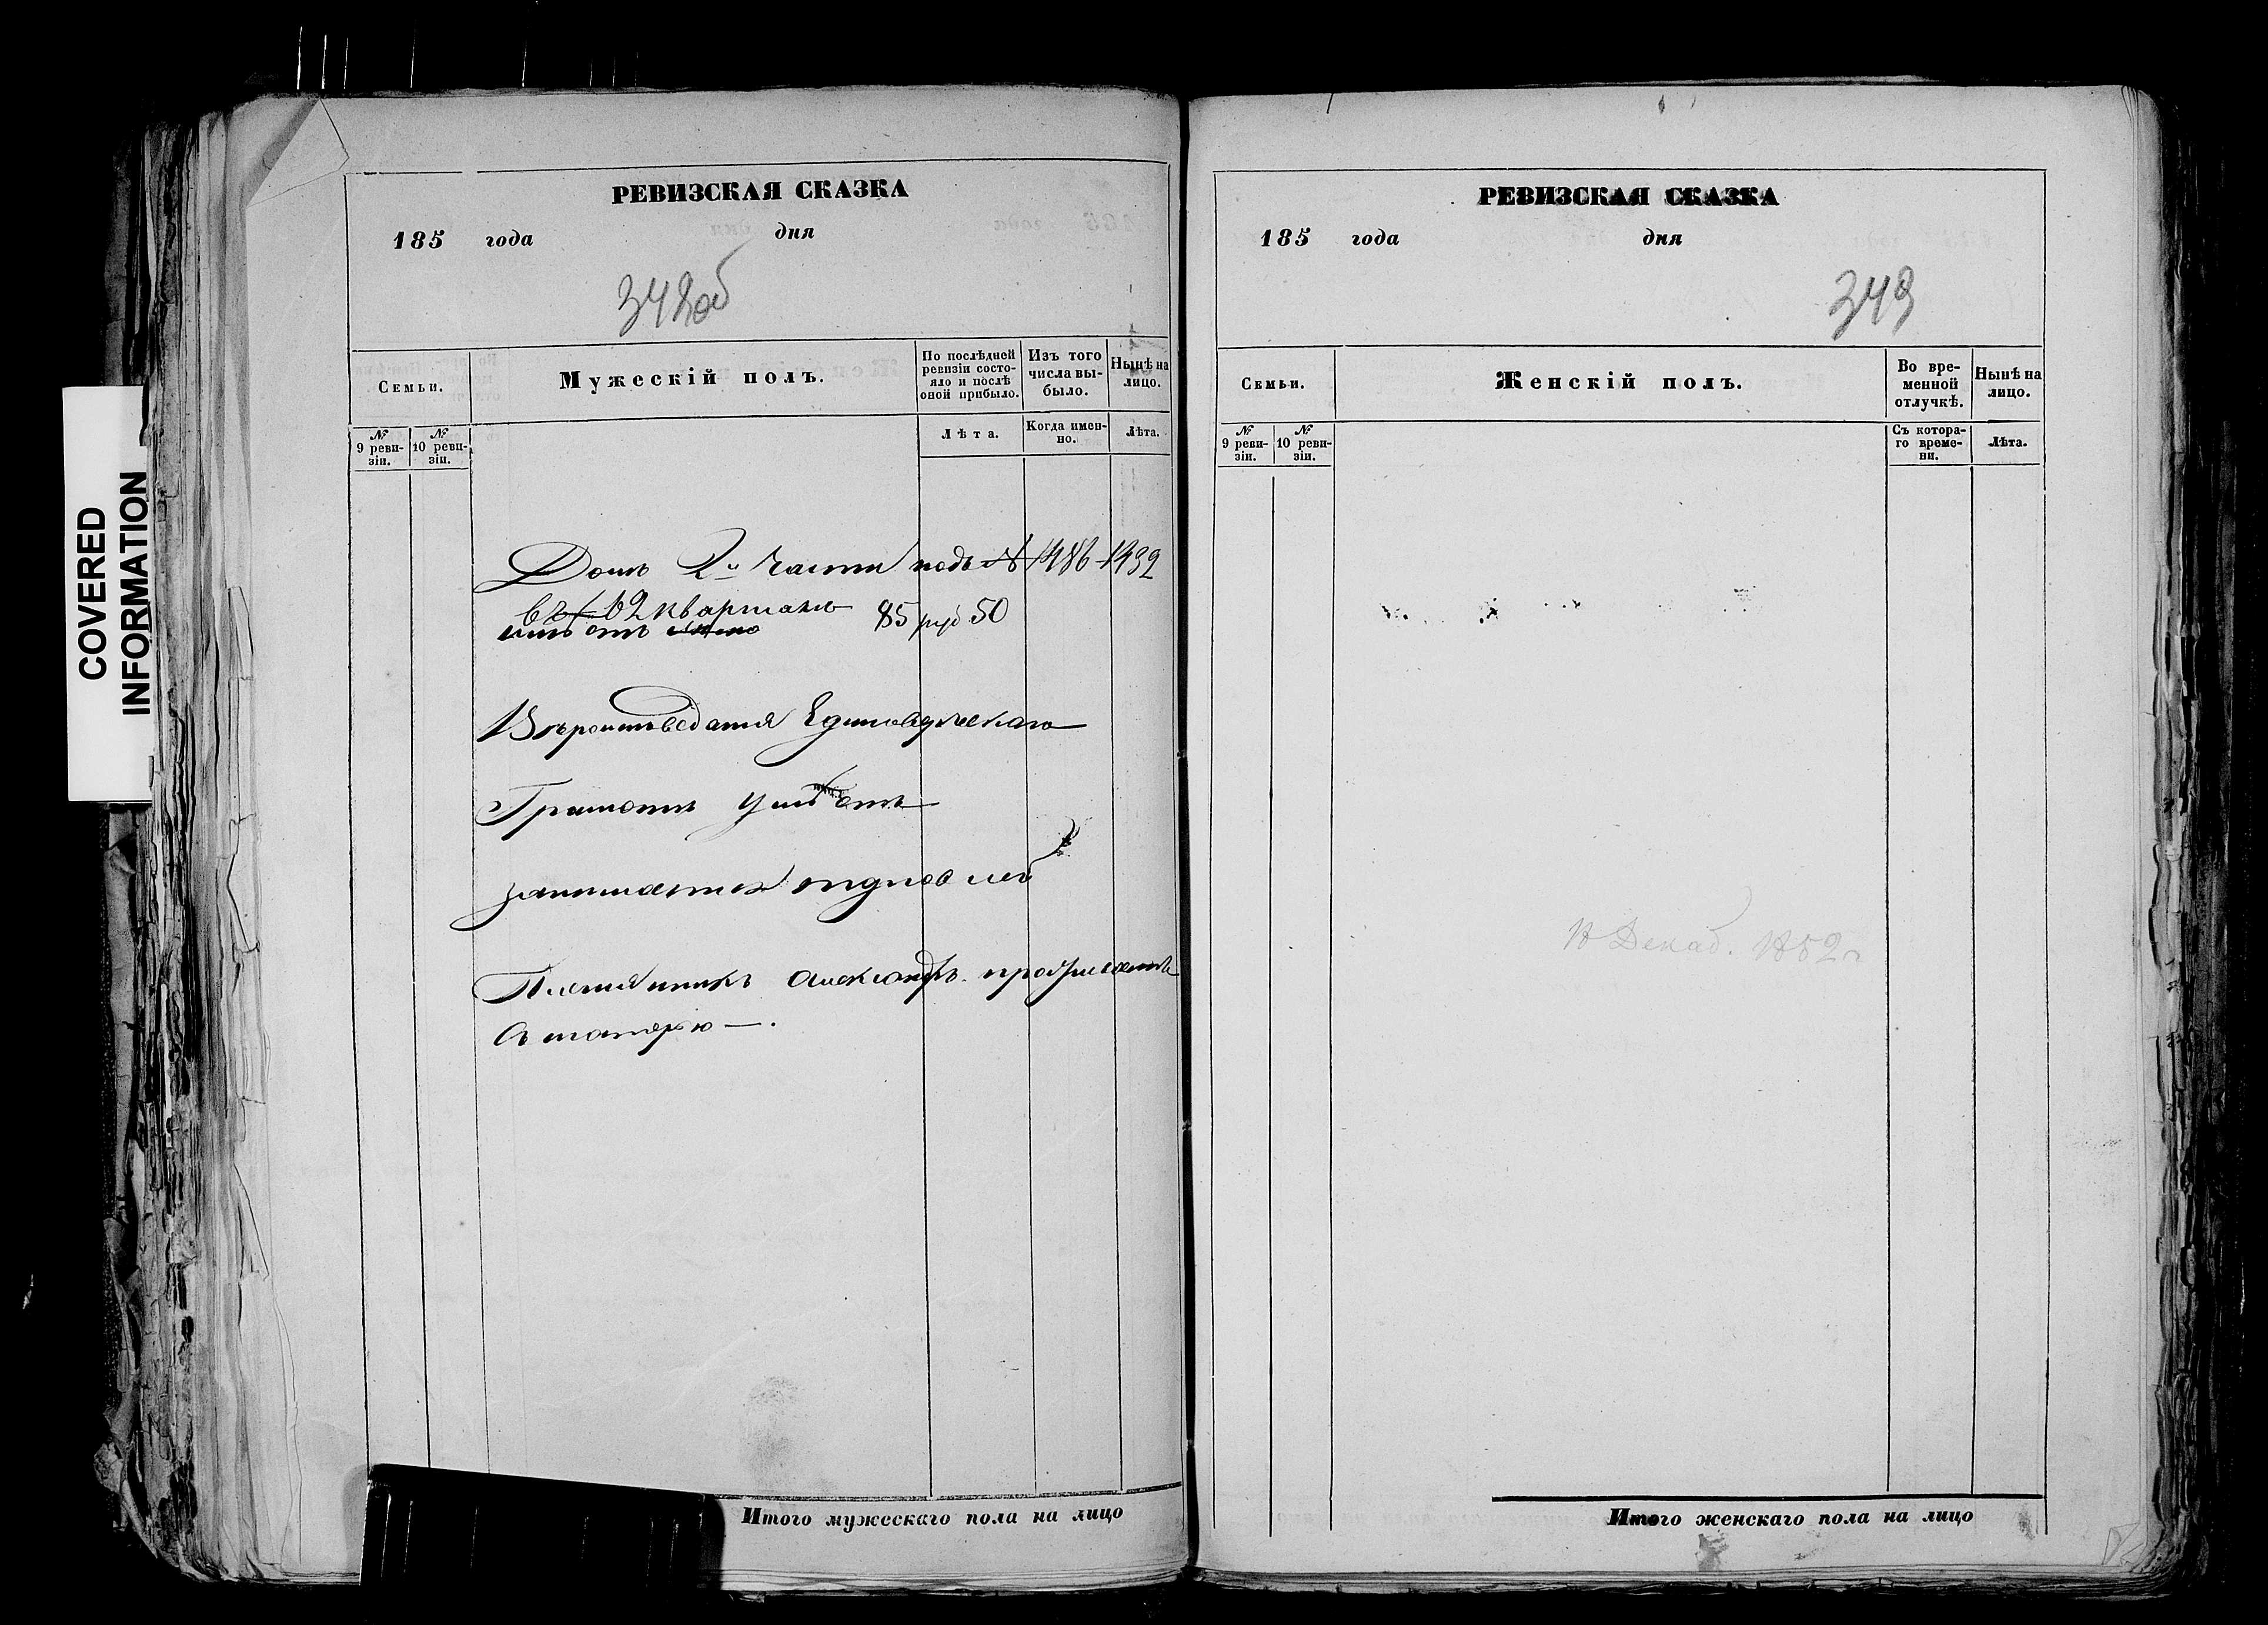 COVERED
INFORMATION
РЕВИЗСКАЯ СКАЗКА
185 года дня
342об
Семьи.
Мужескій полъ.
По послѣдней ревизіи состояло и послѣ оной прибыло.
Изъ того числа выбыло.
Нынѣ на лицо.
№ 9 ревизіи.
№ 10 ревизіи.
Лѣта.
Когда именно.
Лѣта.
Домъ 2й части подъ №
2 квартала 85 руб 50
Вѣроисповѣданія Единовѣрческаго
Грамотѣ умѣетъ
занимается торговлей
Племянникъ Александръ проживаетъ
съ матерью —.
Итого мужескаго пола на лицо
РЕВИЗСКАЯ СКАЗКА
185 года дня
343
Семьи.
Женскій полъ.
Во временной отлучкѣ.
Нынѣ на лицо.
№ 9 ревизіи.
№ 10 ревизіи.
Съ котораго времени.
Лѣта.
Декаб. 1852 г
Итого женскаго пола на лицо